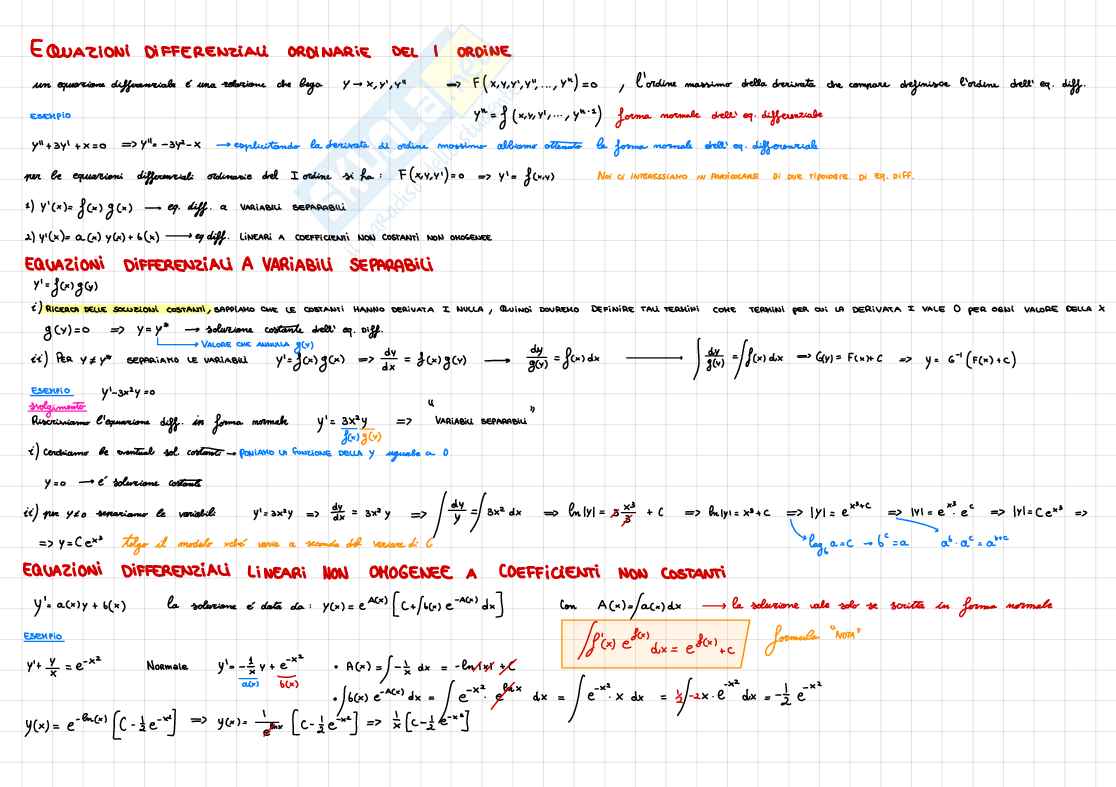 EQUAZIONI DIFFERENZIALI ORDINARIE DEL I ORDINE
un equazione differenziale è una relazione che lega y → x, y', y'' => F(x,y,y',y'',...,yⁿ)=0 , l'ordine massimo della derivata che compare definisce l'ordine dell' eq. diff.
yⁿ = f(x,y,y',...,yⁿ⁻¹) forma normale dell' eq. differenziale
ESEMPIO
y''+3y'+x=0 => y''=-3y²-x → esplicitando la derivata di ordine massimo abbiamo ottenuto la forma normale dell' eq. differenziale
per le equazioni differenziali ordinarie del I ordine si ha: F(x,y,y')=0 => y'=f(x,y) NOI CI INTERESSIAMO IN PARTICOLARE DI DUE TIPOLOGIE DI EQ. DIFF.
1) y'(x)=f(x)g(x) → eq. diff. a VARIABILI SEPARABILI
2) y'(x)=a(x)y(x)+b(x) → eq diff. LINEARI A COEFFICIENTI NON COSTANTI NON OMOGENEE
EQUAZIONI DIFFERENZIALI A VARIABILI SEPARABILI
y'=f(x)g(y)
i) RICERCA DELLE SOLUZIONI COSTANTI, SAPPIAMO CHE LE COSTANTI HANNO DERIVATA I NULLA, QUINDI DOVREMO DEFINIRE TALI TERMINI COME TERMINI PER CUI LA DERIVATA I VALE 0 PER OGNI VALORE DELLA X
g(y)=0 => y=y* → soluzione costante dell' eq. Diff.
VALORE CHE ANNULLA g(y)
ii) PER y≠y* SEPARIAMO LE VARIABILI y'=f(x)g(x) => dy/dx = f(x)g(y) → dy/g(y) = f(x)dx → ∫dy/g(y) = ∫f(x)dx => G(y)=F(x)+C => y= G⁻¹(F(x)+C)
ESEMPIO y'-3x²y=0
svolgimento
Riscriviamo l'equazione diff. in forma normale y'= 3x²y => "VARIABILI SEPARABILI"
f(x) g(y)
i) Cerchiamo le eventuali sol. costanti → PONIAMO LA FUNZIONE DELLA y uguale a 0
y=0 → è soluzione costante
ii) per y≠0 separiamo le variabili y'=3x²y => dy/dx = 3x²y => ∫dy/y = ∫3x² dx => ln|y| = 3 x³/3 + C => ln|y|=x³+C => |y|=e^(x³+C) => |y|=e^(x³)·e^C => |y|=Ce^(x³) =>
=> y=Ce^(x³) tolgo il modulo xché varia a seconda del variare di C log_b a=c → b^c=a a^b·a^c=a^(b+c)
EQUAZIONI DIFFERENZIALI LINEARI NON OMOGENEE A COEFFICIENTI NON COSTANTI
y'=a(x)y+b(x) la soluzione è data da: y(x)=e^(A(x)) [C+∫b(x)e^(-A(x))dx] Con A(x)=∫a(x)dx → la soluzione vale solo se scritta in forma normale
ESEMPIO
∫f'(x)e^(f(x))dx = e^(f(x))+c formula "NOTA"
y'+ y/x = e^(-x²) Normale y'= -1/x y + e^(-x²) • A(x)=∫-1/x dx = -ln|x|+C
a(x) b(x)
• ∫b(x)e^(-A(x))dx = ∫e^(-x²)·e^(lnx) dx = ∫e^(-x²)·x dx = 1/2∫-2x·e^(-x²)dx = -1/2 e^(-x²)
y(x)=e^(-ln(x)) [C-1/2e^(-x²)] => y(x)= 1/e^(lnx) [C-1/2e^(-x²)] => 1/x [C-1/2e^(-x²)]